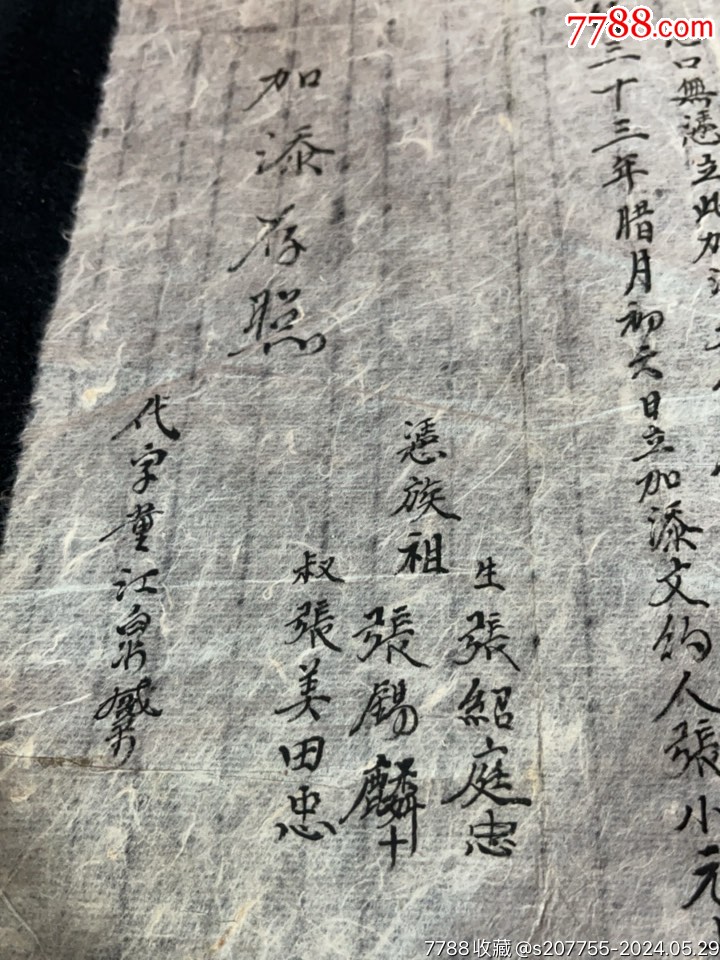 口無憑立此加添
三十三年腊月初六日立加添文約人張小元
生張紹庭忠
憑族祖張錫麟十
叔張美田忠
加添存照
代字董江
7788.com
7788收藏@s207755-2024.05.29